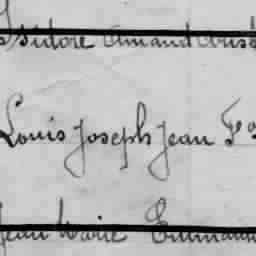 Isidore Amand
Louis Joseph Jean Fs
Jean Marie